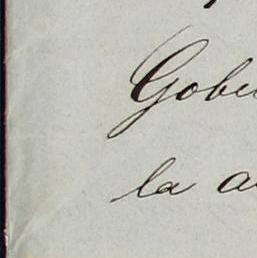 Gobe
la a